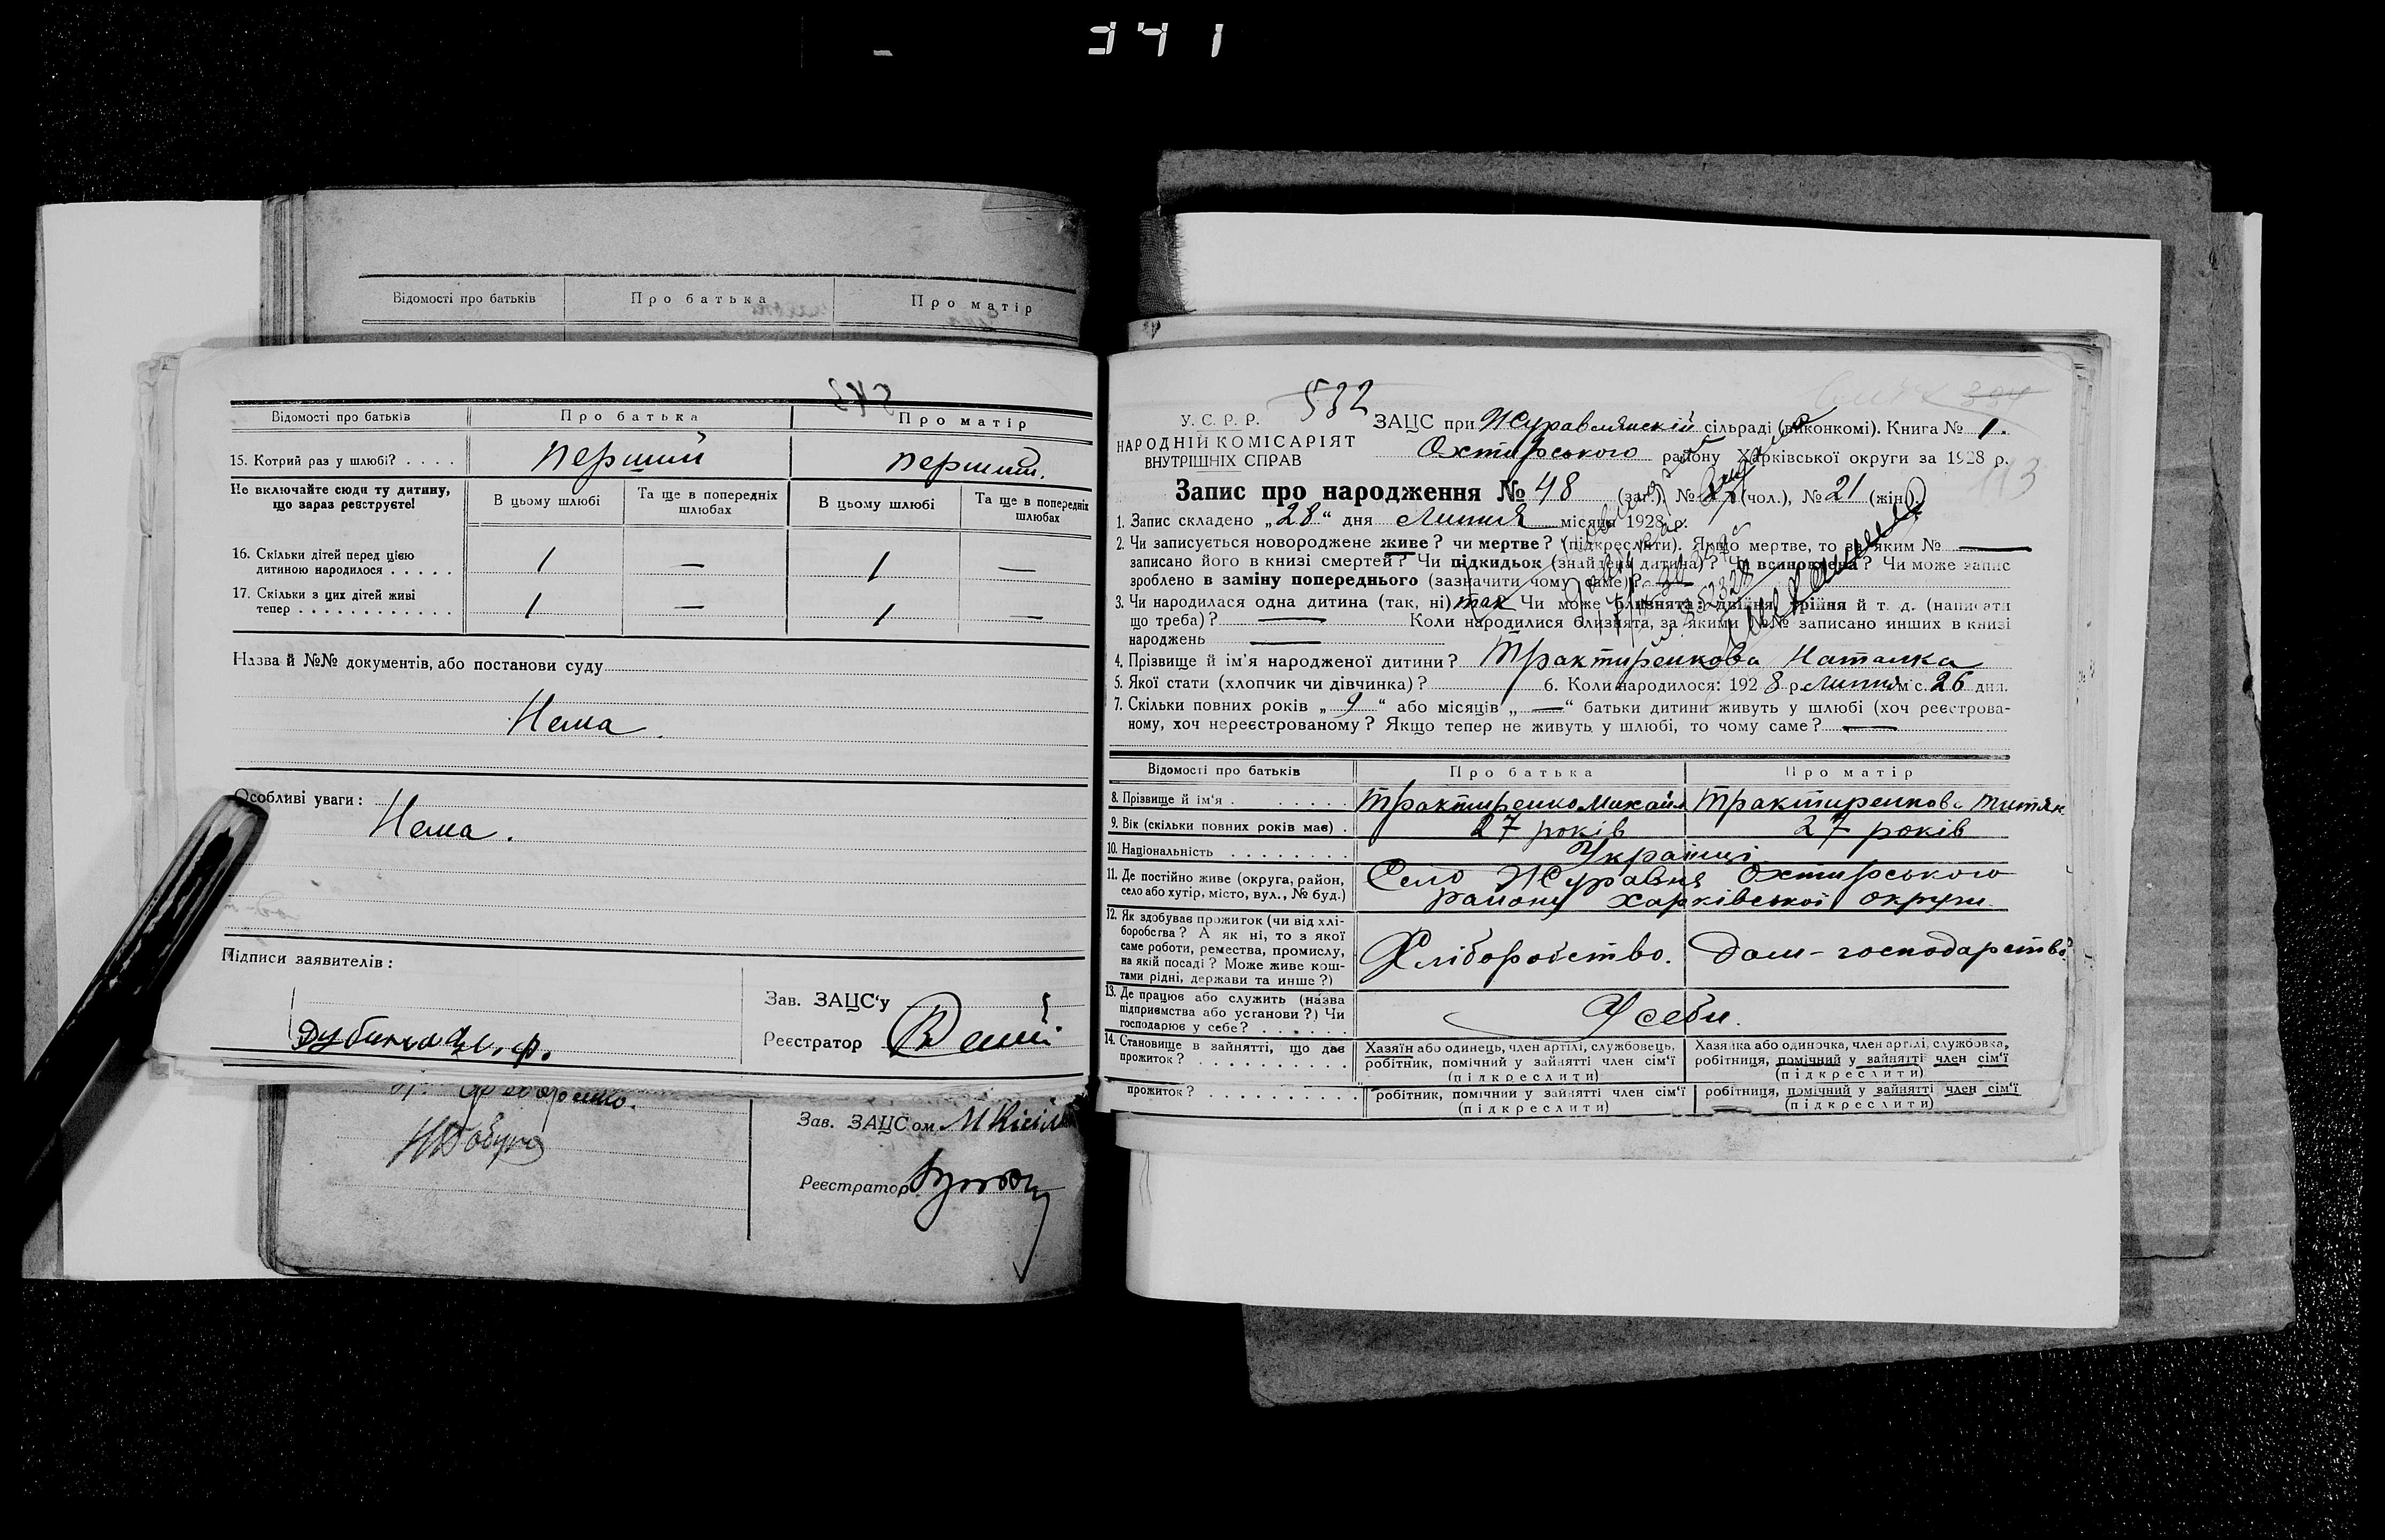 341
Відомості про батьків
Про батька
Про матір
Відомості про батьків
Про батька
Про матір
15. Котрий раз у шлюбі? . . . .
перший
перший.
Не включайте сюди ту дитину,
що зараз реєструєте!
В цьому шлюбі
Та ще в попередніх
шлюбах
В цьому шлюбі
Та ще в попередніх
шлюбах
16. Скільки дітей перед цією
дитиною народилося . . . . .
1
—
1
—
17. Скільки з цих дітей живі
тепер . . . . . . . . . . . .
1
—
1
—
Назва й №№ документів, або постанови суду
Нема.
Особливі уваги:
Нема.
Підписи заявителів:
Зав. ЗАЦС'у
Реєстратор
Зав. ЗАЦСом
Реєстратор
532
У. С. Р. Р.
НАРОДНІЙ КОМІСАРІЯТ
ВНУТРІШНІХ СПРАВ
ЗАЦС при Журавлянскій сільраді (виконкомі). Книга № 1.
Охтирського району Харківської округи за 1928 р.
Запис про народження № 48 (заг.), № (чол.), № 21 (жін.).
1. Запис складено „28“ дня Липня місяця 1928 р.
2. Чи записується новороджене живе? чи мертве? (підкреслити). Якщо мертве, то за яким № —
записано його в книзі смертей? Чи підкидьок (знайдена дитина)? Чи всиновлена? Чи може запис
зроблено в заміну попереднього (зазначити чому саме)? —
3. Чи народилася одна дитина (так, ні) так Чи може близнята: двійня, трійня й т. д. (написати
що треба)? — Коли народилися близнята, за якими №№ записано инших в книзі
народжень —
4. Прізвище й ім'я народженої дитини? Трактиренкова Наталка
5. Якої стати (хлопчик чи дівчинка)? 6. Коли народилося: 1928 р. Липня м-с. 26 дня.
7. Скільки повних років „9“ або місяців „—“ батьки дитини живуть у шлюбі (хоч реєстрова-
ному, хоч нереєстрованому? Якщо тепер не живуть у шлюбі, то чому саме? —
Відомості про батьків
Про батька
Про матір
8. Прізвище й ім'я . . . . . .
Трактиренко Михайл
Трактиренкова Титян
9. Вік (скільки повних років має) .
27 років
27 років
10. Національність . . . . . . . .
Українці
11. Де постійно живе (округа, район,
село або хутір, місто, вул., № буд.)
Село Журавня Охтирського
району Харківської округи
12. Як здобуває прожиток (чи від хлі-
боробства? А як ні, то з якої
саме роботи, ремества, промислу,
на якій посаді? Може живе кош-
тами рідні, держави та инше?)
Хліборобство.
Дом-господарство.
13. Де працює або служить (назва
підприємства або установи?) Чи
господарює у себе? . . . . . .
У себи.
14. Становище в зайнятті, що дає
прожиток? . . . . . . . . . .
Хазяїн або одинець, член артілі, службовець,
робітник, помічний у зайнятті член сім'ї
(підкреслити)
Хазяйка або одиночка, член артілі, службовка,
робітниця, помічний у зайнятті член сім'ї
(підкреслити)
прожиток? . . . . . . . . . .
робітник, помічний у зайнятті член сім'ї
(підкреслити)
робітниця, помічний у зайнятті член сім'ї
(підкреслити)